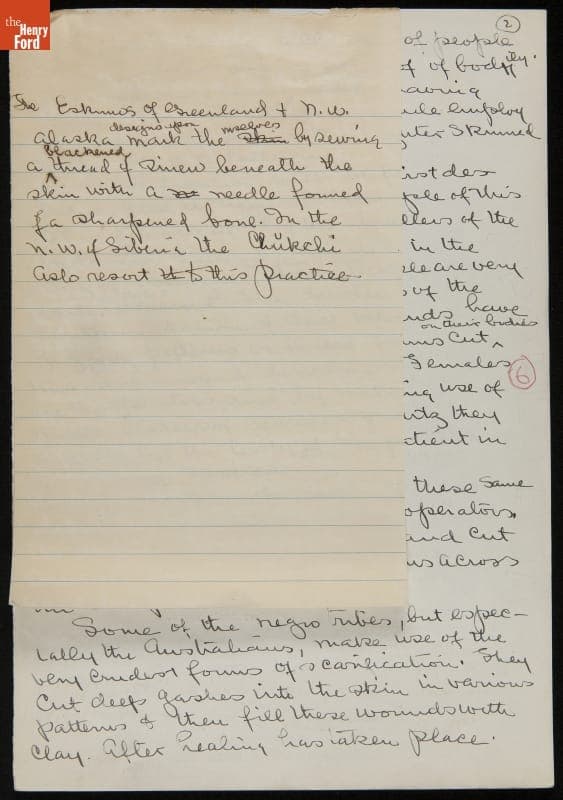 the
Henry
Ford
The Eskimos of Greenland & N.W.
designs upon mselves
Alaska mark the skin by sewing
blackened
a thread of sinew beneath the
skin with a needle formed
of a sharpened bone. In the
N.W. of Siberia the Chŭkchi
aslo resort to this practice
2
of people
of of bodily.
having
employ
Skinned
of this
of the
in the
are very
of the
have
on their bodies
cut
Females
6
use of
they
in
these same
operators,
and cut
across
Some of the negro tribes, but espec-
ially the Australians, make use of the
very crudest forms of scarification. They
cut deep gashes into the skin in various
patterns & then fill these wounds with
clay. After healing has taken place.